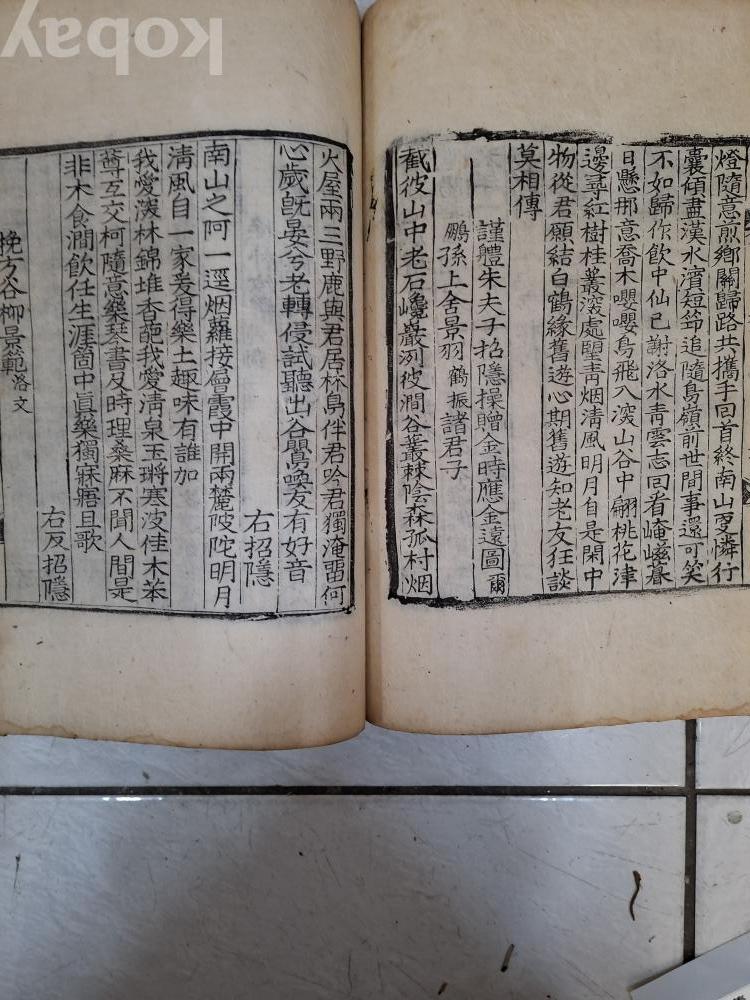 kobay
燈隨意煎鄉關歸路共攜手回首終南山更憐行
囊傾盡漢水濱短筇追隨鳥嶺前世間事還可笑
不如歸作飮中仙已謝洛水靑雲志回看崦嵫暮
日懸那意喬木嚶嚶鳥飛入深山谷中翩桃花津
邊尋紅樹桂叢深處望靑烟淸風明月自是閑中
物從君願結白鶴緣舊遊心期舊遊知老友狂談
莫相傳
謹軆朱夫子招隱操贈金時應金遠圖爾
鵬孫上舍景羽鶴振諸君子
截彼山中老石巉巖冽彼澗谷叢棘陰森孤村烟
火屋兩三野鹿與君居林鳥伴君吟君獨淹留何
心歲旣晏兮老轉侵試聽出谷鸎喚友有好音
右招隱
南山之阿一逕烟蘿接會霞中開兩麓陂陀明月
淸風自一家爰得樂土趣味有誰加
我愛深林錦堆香葩我愛淸泉玉鏘寒波佳木苯
尊互交柯隨意樂琴書及時理桑麻不聞人間是
非木食澗飮任生涯箇中眞樂獨寐寤且歌
右反招隱
挽方谷柳景範洛文